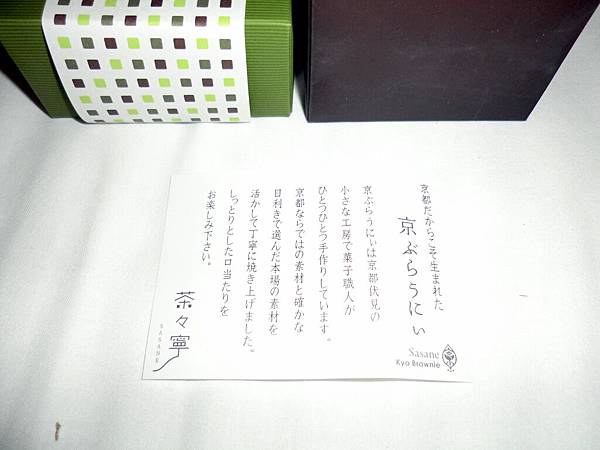 京都だからこそ生まれた
京ぶらうにぃ
Sasane
Kyo Brownie
京ぶらうにぃは京都伏見の
小さな工房で菓子職人が
ひとつひとつ手作りしています。
京都ならではの素材と確かな
目利きで選んだ本場の素材を
活かして丁寧に焼き上げました。
しっとりとした口当たりを
お楽しみ下さい。
茶々寧
SASANE